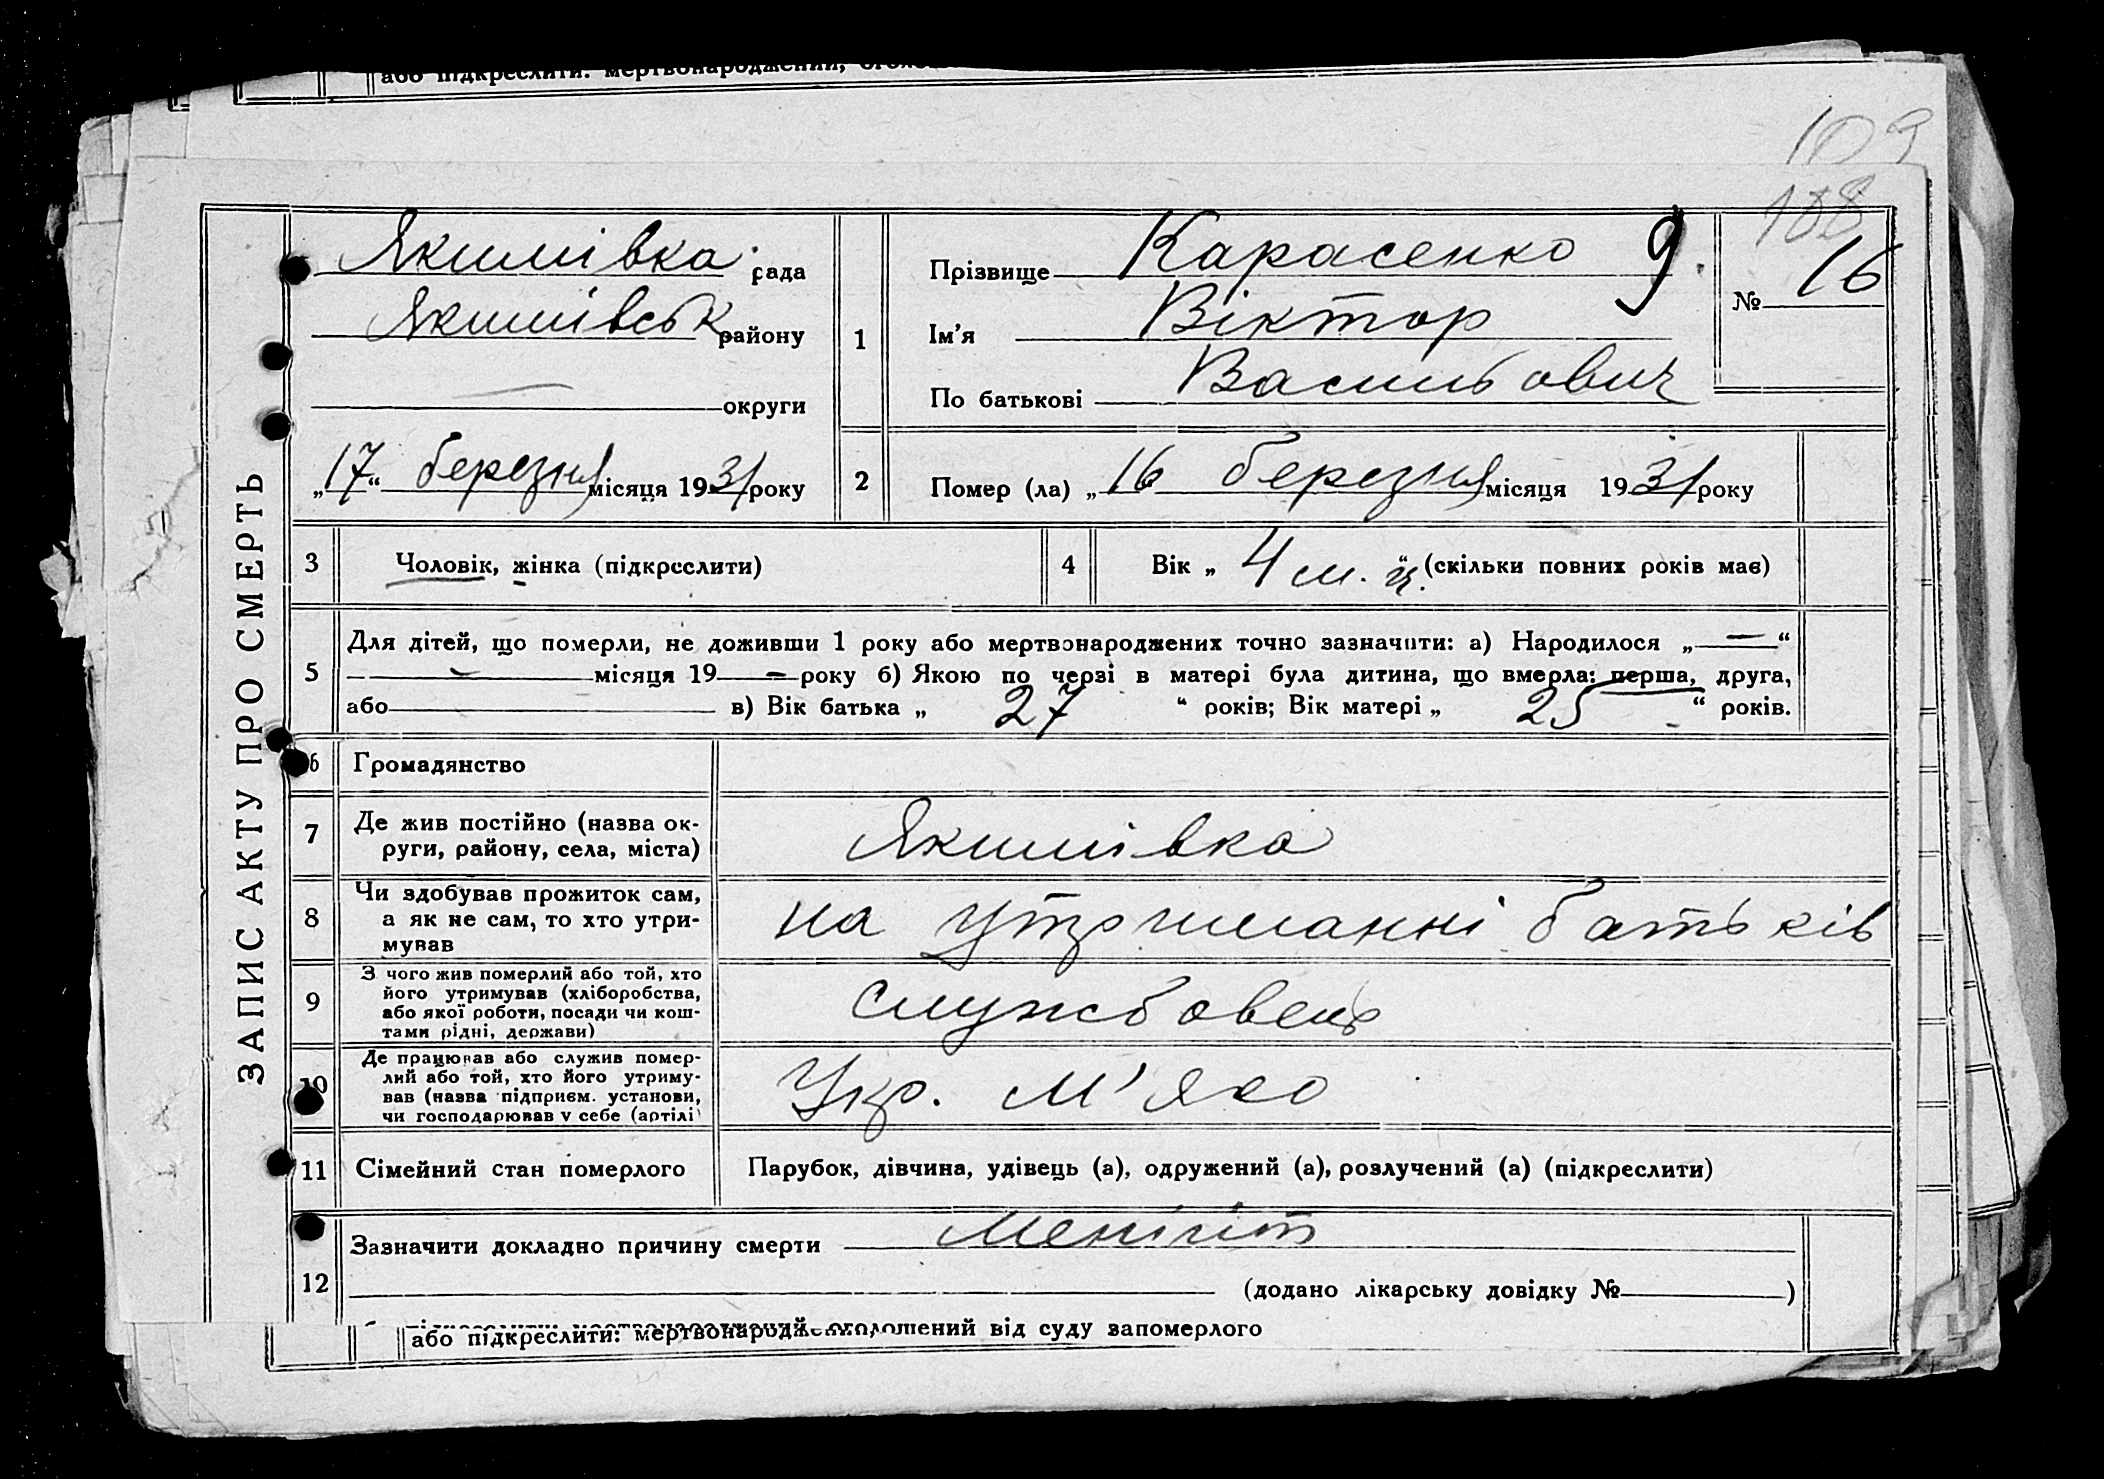 або підкреслити: мертвонароджений,
109
108
ЗАПИС АКТУ ПРО СМЕРТЬ
Якимівка рада
Якимівськ району
округи
„17“ березня місяця 1931 року
1
Прізвище Карасенко 9.
Ім'я Віктор
По батькові Васильович
№ 16
2
Помер (ла) „16 березня місяця 1931 року
3 Чоловік, жінка (підкреслити)
4 Вік „ 4 м. ч. “ (скільки повних років має)
5
Для дітей, що померли, не доживши 1 року або мертвонароджених точно зазначити: а) Народилося „ — “
— місяця 19 — року б) Якою по черзі в матері була дитина, що вмерла: перша, друга,
або в) Вік батька „ 27 “ років; Вік матері „ 25 “ років.
6 Громадянство
7 Де жив постійно (назва ок-
руги, району, села, міста)
Якимівка
8 Чи здобував прожиток сам,
а як не сам, то хто утри-
мував
на утриманні батьків
9 З чого жив померлий або той, хто
його утримував (хліборобства,
або якої роботи, посади чи кош-
тами рідні, держави)
службовець
10 Де працював або служив помер-
лий або той, хто його утриму-
вав (назва підприєм. установи,
чи господарював у себе (артілі)
Укр. М'ясо
11 Сімейний стан померлого Парубок, дівчина, удівець (а), одружений (а), розлучений (а) (підкреслити)
12
Зазначити докладно причину смерти Менінгіт
(додано лікарську довідку № )
або підкреслити: мертвонароджений, оголошений від суду запомерлого